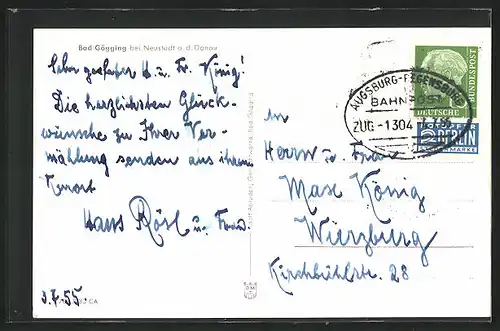 Bad Gögging bei Neustadt a. d. Donau
Sehr geehrter H. u. Fr. König!
Die herzlichsten Glück-
wünsche zu Ihrer Ver-
mählung senden aus ihrem
Kurort
Hans Rösl u. Frau.
3.7.55.
CA
AUGSBURG-REGENSBURG
BAHNPOST
ZUG-1304
DEUTSCHE
BUNDESPOST
NOTOPFER
2 BERLIN
STEUERMARKE
An
Herrn u. Frau
Max König
Würzburg
Kirchbühlstr. 28